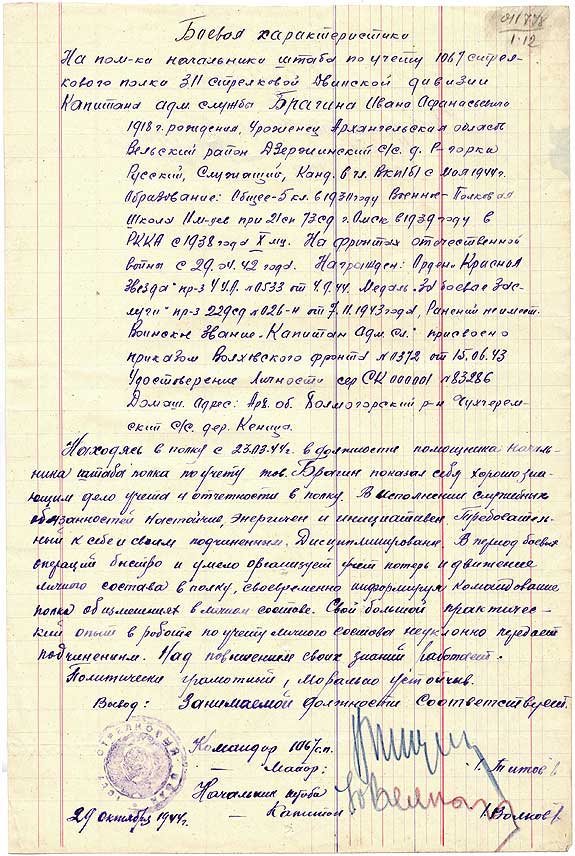 011778
1-12
Боевая характеристика
На пом-ка начальника штаба по учету 1067 стрел-
кового полка 311 стрелковой Двинской дивизии
Капитана адм. служба Брагина Ивана Афанасьевича
1918 г. рождения, Уроженец Архангельская область
Вельский район Дзержинский с/с. д. Р-горка
Русский, Служащий, Канд. в чл. ВКП(б) с мая 1944г.
Образование: Общее-5 кл. в 1930 году Военное-Полковая
Школа Мл-дев при 21 сп 73 сд г. Омск в 1939 году в
РККА с 1938 года X мц. На фронтах отечественной
войны с 29.04.42 года. Награжден: Орден „Красная
Звезда" пр-з 4 У.А. №0533 от 4.9.44. Медаль „За боевые Зас-
луги" пр-з 229сд №026-н от 7.11.1943 года, Ранений не имеет.
Воинское Звание „Капитан Адм. Сл." присвоено
приказом Волховского фронта №0372 от 15.06.43
Удостоверение Личности сер СК 000001 №83286
Домаш. Адрес: Арх. об. Холмогорский р-н Чухчерем-
ский с/с. дер. Кеница.
Находясь в полку с 23.03.44г. в должности помощника Началь-
ника штаба полка по учету тов. Брагин показал себя хорошо зна-
ющим дело учета и отчетности в полку. В исполнении служебных
обязанностей Настойчив, энергичен и инициативен. Требователь-
ный к себе и своим подчиненным. Дисциплинирован. В период боевых
операций быстро и умело организует учет потерь и движение
личного состава в полку, своевременно информируя командование
полка об изменениях в личном составе. Свой большой практичес-
кий опыт в работе по учету личного состава неуклонно передает
подчиненным. Над повышением своих знаний работает.
Политически грамотный, морально устойчив.
Вывод: Занимаемой должности соответствует.
Командир 1067 с.п.
— Майор: /. Титов /.
Начальник штаба
— Капитан /. Волков /.
29 октября 1944г.